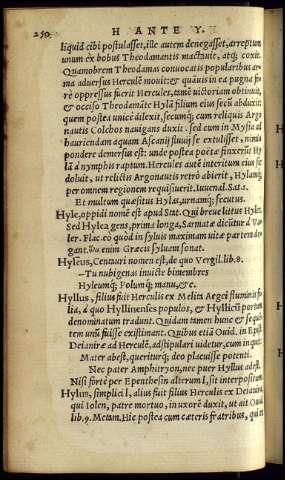 250 H ANTE Y.
liquid cibi postulasset, ille autem denegasset, arreptum
unum ex bobus Theodamantis mactauit, atq; coxit.
Quamobrem Theodamas conuocatis popularibus ar-
ma aduersus Herculē mouit: & quāuis in ea pugna fe-
rè oppressus fuerit Hercules, tamē uictoriam obtinuit,
& occiso Theodamāte Hylā filium eius secū abduxit:
quem postea unicè dilexit, secumq; cum reliquis Argo-
nautis Colchos nauigans duxit. sed cum in Mysia ad
hauriendam aquam Ascanij fluuij se extulisset, nimio
pondere demersus est: unde postea poetæ finxerūt Hy
lā à nymphis raptum. Hercules autē interitum eius se
doluit, ut relictis Argonautis retrò abierit, Hylamq;
per omnem regionem requisiuerit. Iuuenal. Sat. 1.
Et multum quæsitus Hylas, urnamq; secutus.
Hyle, oppidi nomē est apud Stat. Qui breue litus Hyles.
Sed Hylea gens, prima longa, Sarmatæ dicūtur à Va-
ler. Flac. eò quòd in syluis maximam uitæ partem de-
gant. enim Græcis syluem sonat.
Hyleus, Centauri nomen est, de quo Vergil. lib. 8.
—Tu nubigenas inuicte bimembres
Hyleumq; Folumq; manu, & c.
Hyllus, filius fuit Herculis ex Melita Aegei fluminis fi-
lia, à quo Hyllinenses populos, & Hyllicū portum
denominatum tradunt. Quidam tamen hunc & sequen
tem unū fuisse existimant. Quibus etiā Ouid. in Epist.
Deianiræ ad Herculē, adstipulari uidetur, cum in quit:
Mater abest, queriturq; deo placuisse potenti.
Nec pater Amphitryon, nec puer Hyllus adest.
Nisi fortè per Epenthesin alterum l, sit interpositum
Hylus, simplici l, alius fuit filius Herculis ex Deianira,
qui Iolen, patre mortuo, in uxorē duxit, ut ait Ouid.
lib. 9. Metam. Hic postea cum cæteris fratribus, qui ex